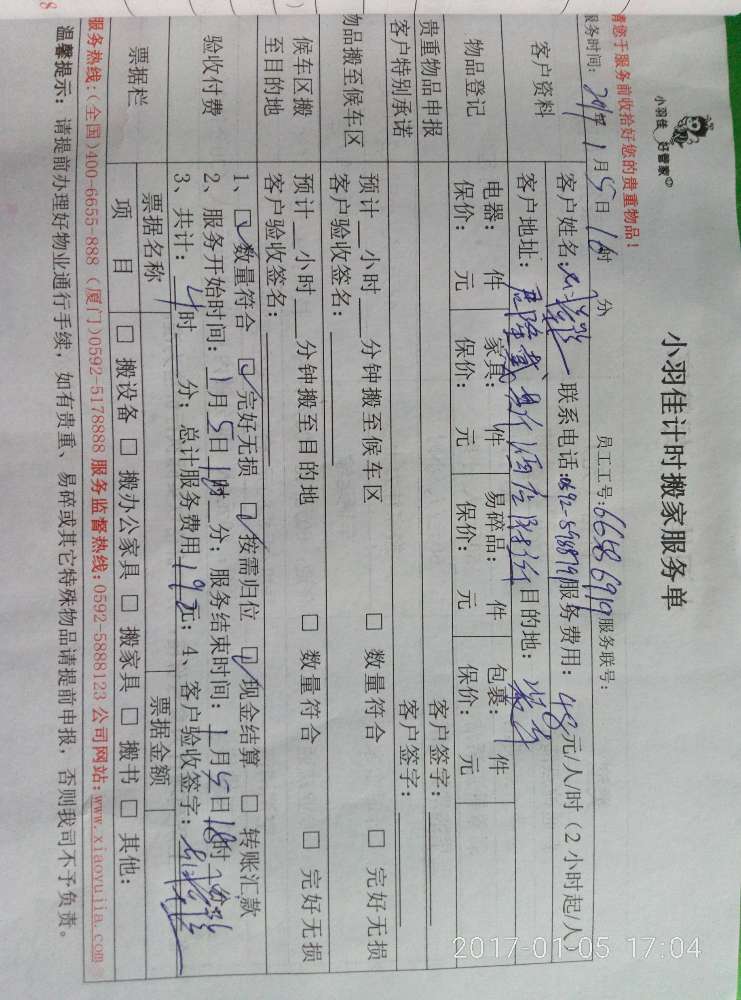 小羽佳 好管家
小羽佳计时搬家服务单
请您于服务前收拾好您的贵重物品！
员工工号: 服务联号:
服务时间: 1月5日 时 分
客户资料
客户姓名: 联系电话: 服务费用: 48元/人/时（2小时起/人）
客户地址: 目的地:
物品登记
电器: 件 家具: 件 易碎品: 件 包裹: 件
保价: 元 保价: 元 保价: 元 保价: 元
贵重物品申报 客户签字:
客户特别承诺 客户签字:
物品搬至候车区
预计__小时___分钟搬至候车区 □ 数量符合 □ 完好无损
客户验收签名:
候车区搬至目的地
预计__小时___分钟搬至目的地 □ 数量符合 □ 完好无损
客户验收签名:
验收付费
1、☑数量符合 ☑完好无损 ☑按需归位 ☑现金结算 □ 转账汇款
2、服务开始时间: 1月5日 时 分; 服务结束时间: 1月5日 时 分
3、共计: 4时___分; 总计服务费用 元; 4、客户验收签字:
票据栏
票据名称 票据金额
项目 □ 搬设备 □ 搬办公家具 □ 搬家具 □ 搬书 □ 其他:
服务热线:(全国)400-6655-888 (厦门)0592-5178888 服务监督热线:0592-5888123 公司网站:www.xiaoyujia.com
温馨提示: 请提前办理好物业通行手续, 如有贵重、易碎或其它特殊物品请提前申报, 否则我司不予负责。
2017-01-05 17:04